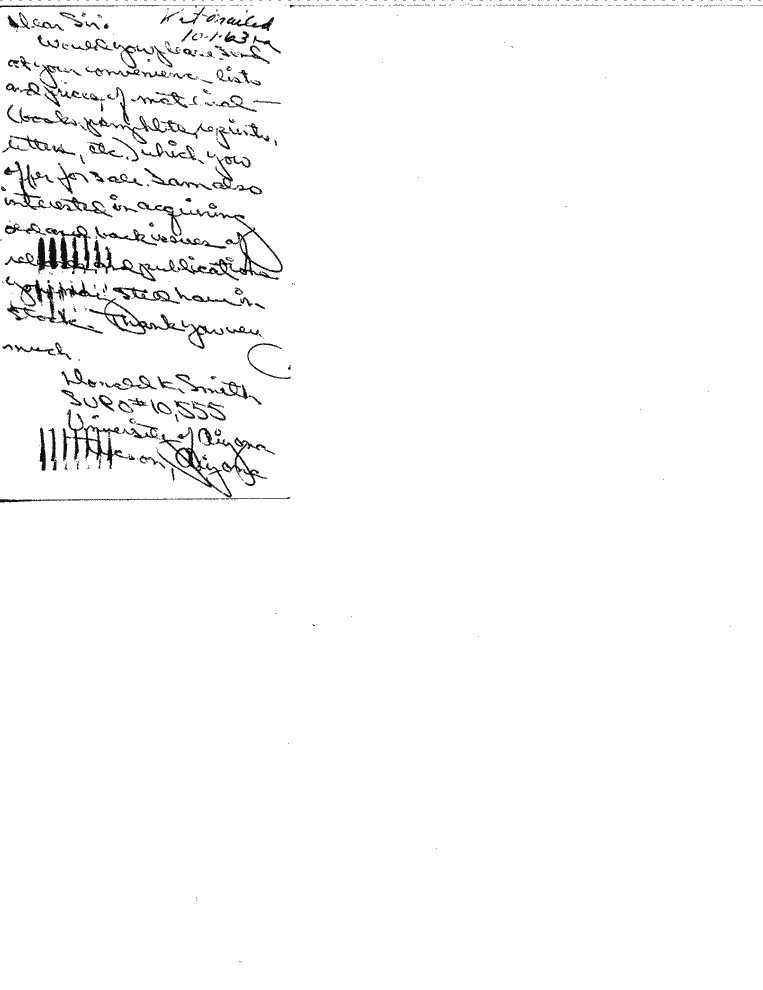 Dear Sir:
mailed
10-1-63
Would you please send
at your convenience lists
and prices of material —
(books, pamphlets, reprints,
letters, etc.) which you
offer for sale. I am also
interested in acquiring
old and back issues of
and publications
you may still have in
stock. Thank you very
much.
Donald K. Smith
SUPO #10,555
University of Arizona
Tucson, Arizona